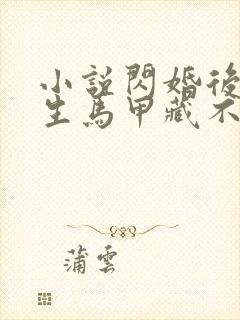 小說閃婚後
生馬甲藏不
蒲雲